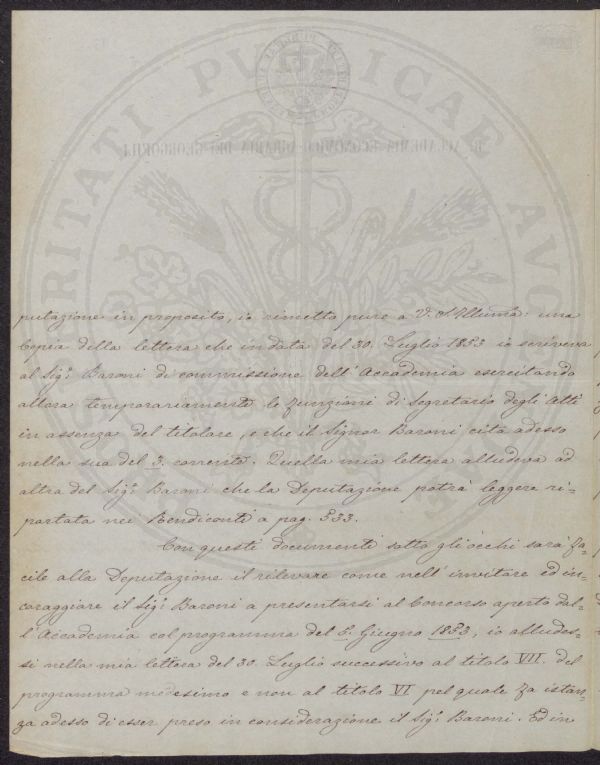 putazione in proposito, io rimetto pure a V. S. Illuma: una
Copia della lettera che in data del 30. Luglio 1853 io scriveva
al Sigr. Baroni di commissione dell'Accademia esercitando
allora temporariamente le funzioni di Segretario degli Atti
in assenza del titolare, e che il Signor Baroni cita adesso
nella sua del 3. corrente. Quella mia lettera alludeva ad
altra del Sigr. Baroni che la Deputazione potrà leggere ri=
portata nei Rendiconti a pag. 533.
Con questi documenti sotto gli occhi sarà fa=
cile alla Deputazione il rilevare come nell'invitare ed in=
coraggiare il Sigr. Baroni a presentarsi al Concorso aperto dal=
l'Accademia col programma del 5. Giugno 1853, io alludes=
si nella mia lettera del 30. Luglio successivo al titolo VII. del
programma medesimo e non al titolo VI pel quale fa istan=
za adesso di esser preso in considerazione il Sigr. Baroni. Ed in